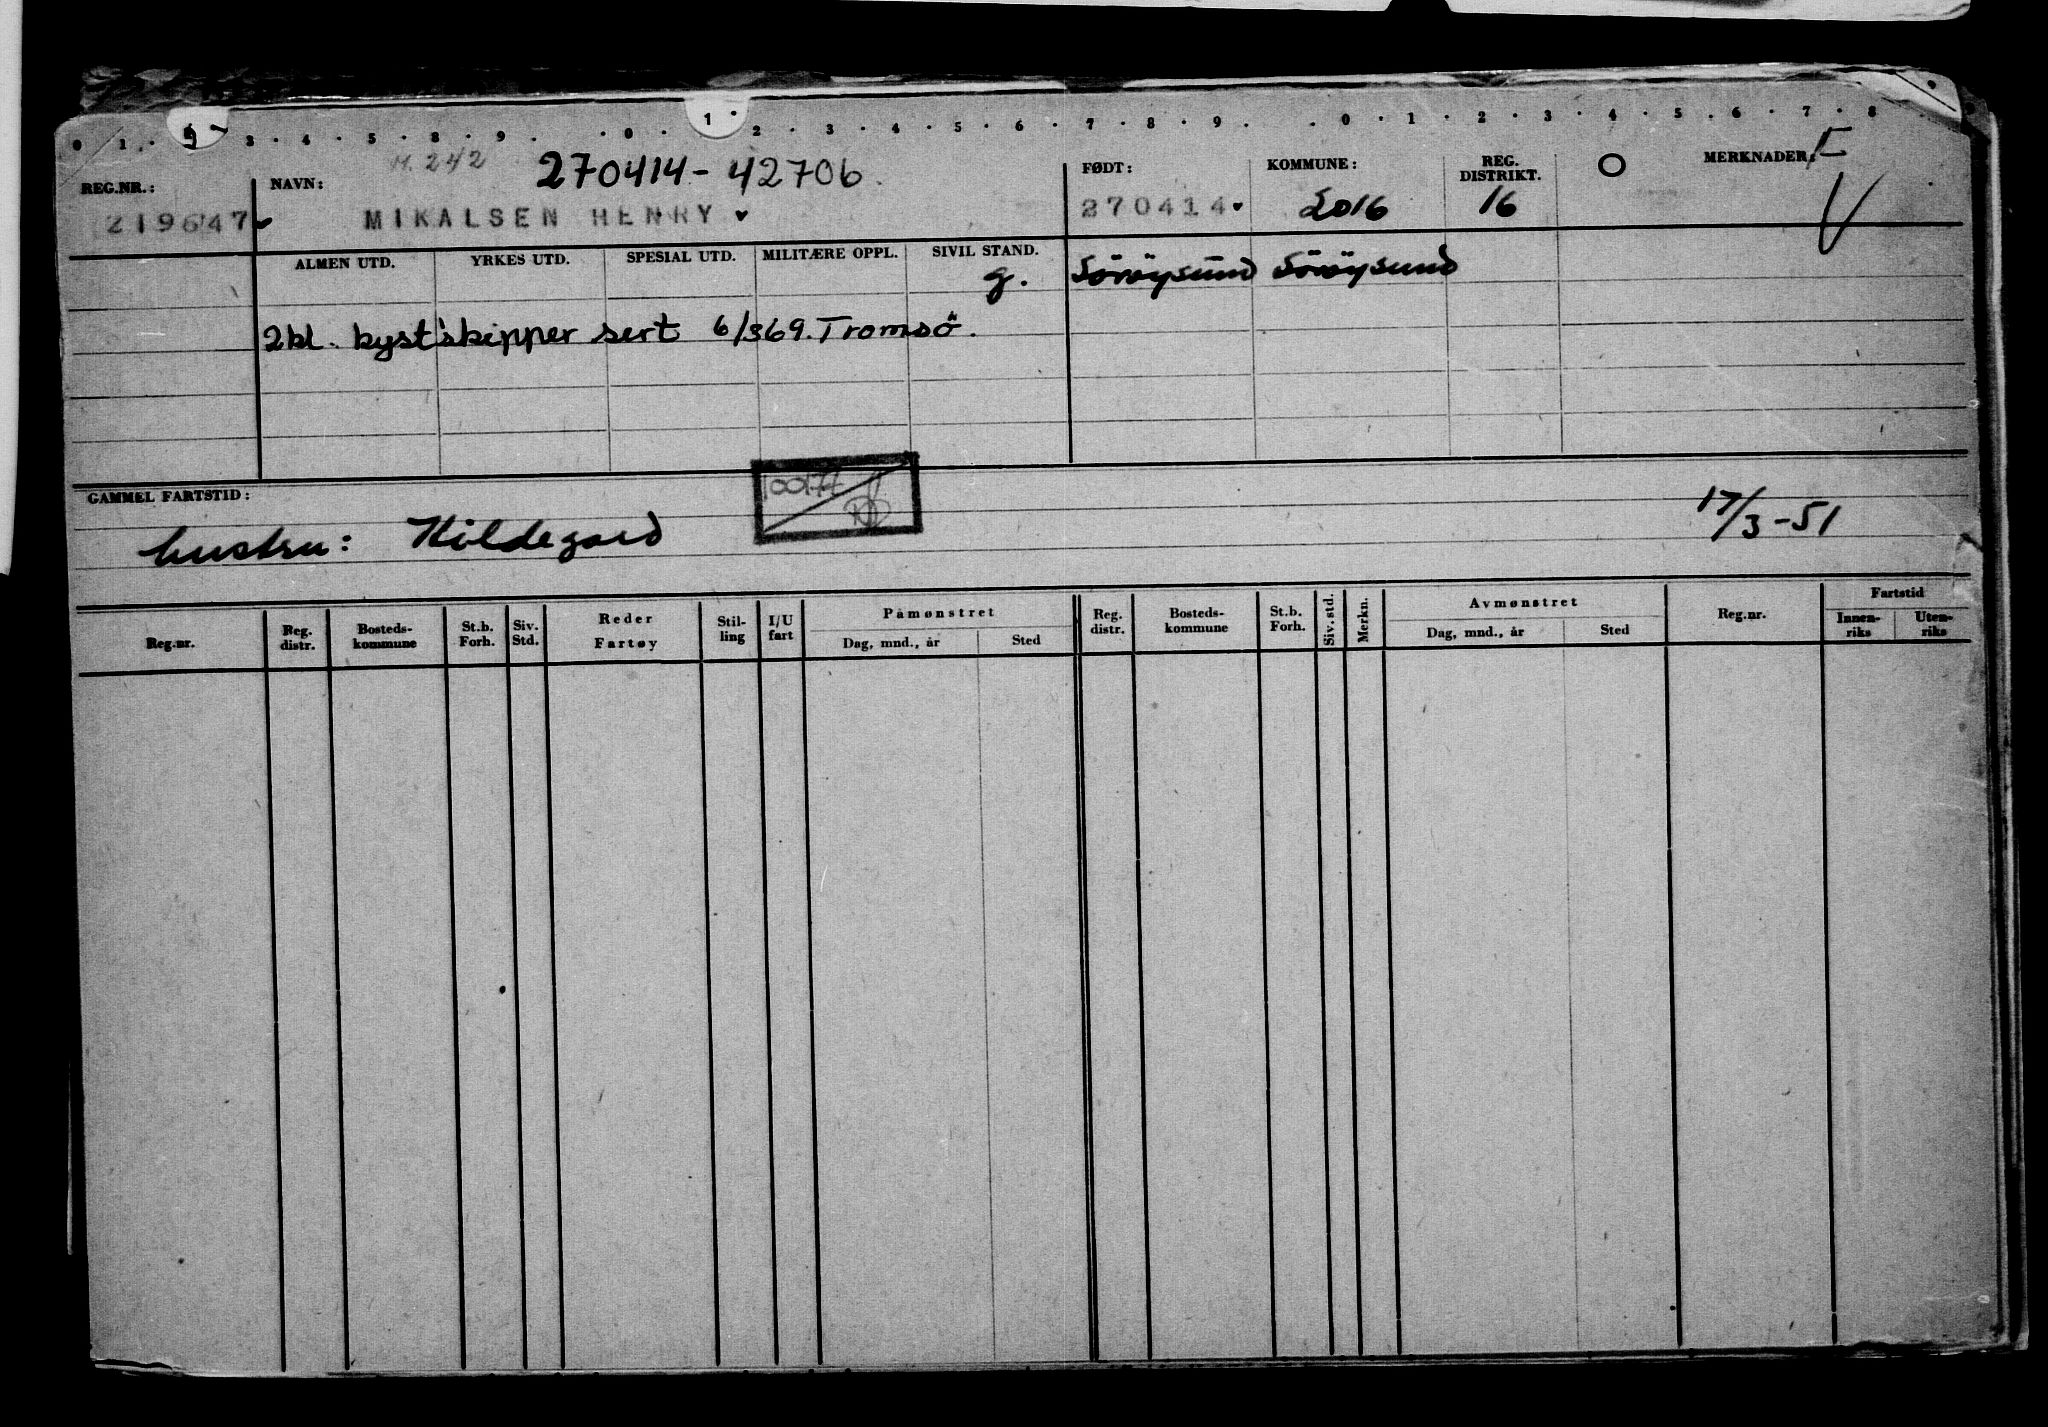 0 1 · 3 · 4 · 5 · 8 · 9 · · 0 · 1 · 2 · 3 · 4 · 5 · 6 · 7 · 8 · 9 · · 0 · 1 · 2 · 3 · 4 · 5 · 6 · 7 · 8
H. 242 270414-42706.
REG.NR.: NAVN: FØDT: KOMMUNE: REG. DISTRIKT. O MERKNADER:
219647 MIKALSEN HENRY 270414 2016 16 V
ALMEN UTD. YRKES UTD. SPESIAL UTD. MILITÆRE OPPL. SIVIL STAND.
g. Söröysund Söröysund
2kl. kystskipper sert 6/369. Tromsö.
GAMMEL FARTSTID:
100177
17/3-51
hustru: Hildegard
Reg.nr. Reg. distr. Bosteds-kommune St.b. Forh. Siv. Std. Reder Fartøy Stil-ling I/U fart Påmønstret Dag, mnd., år Sted Reg. distr. Bosteds-kommune St.b. Forh. Siv. std. Merkn. Avmønstret Dag, mnd., år Sted Reg.nr. Fartstid Innen-riks Uten-riks